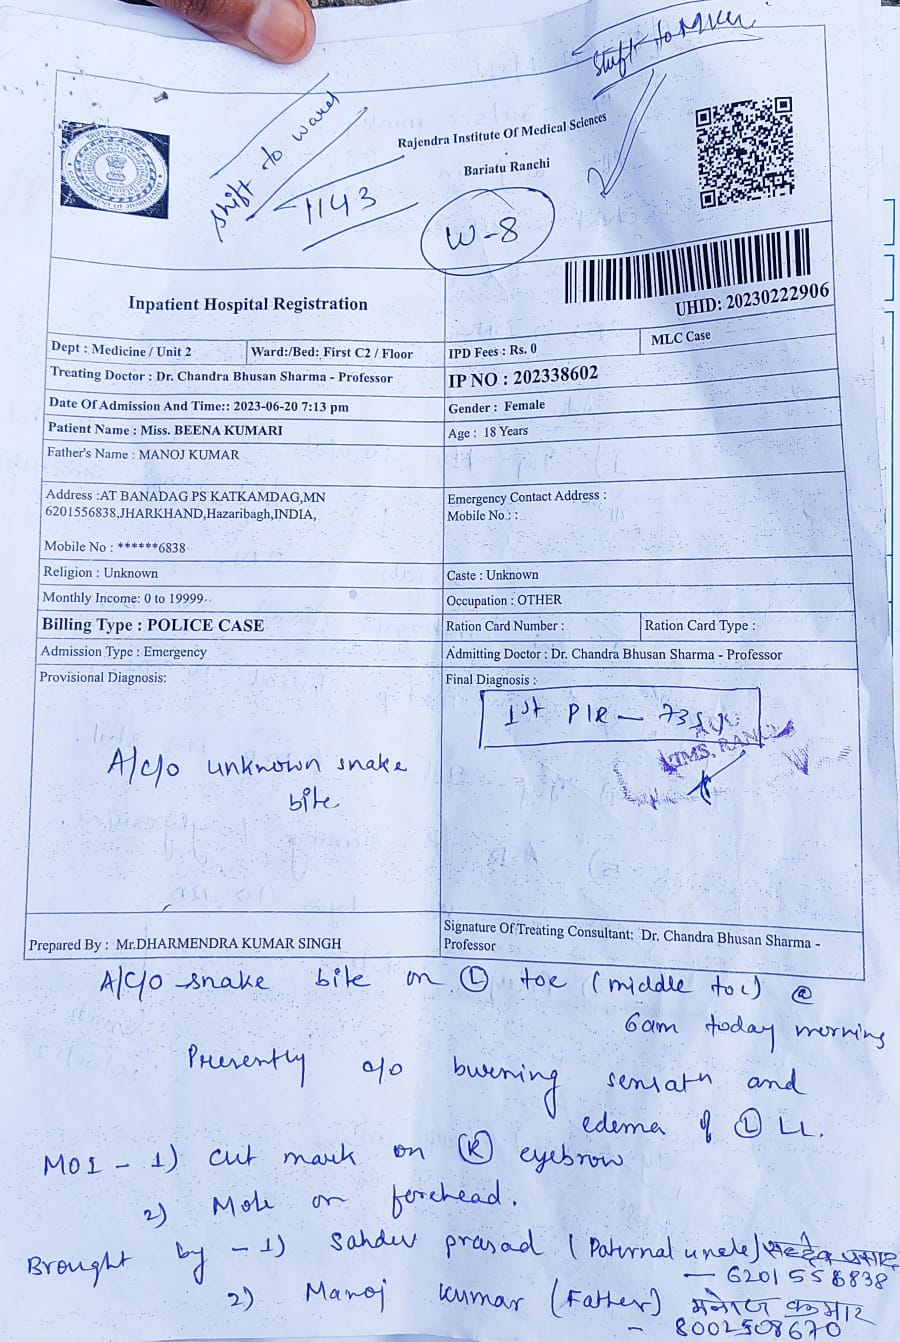 shift to MICU
shift to ward
1143
Rajendra Institute Of Medical Sciences
Bariatu Ranchi
W-8
Inpatient Hospital Registration
UHID: 20230222906
Dept : Medicine / Unit 2
Ward:/Bed: First C2 / Floor
IPD Fees : Rs. 0
MLC Case
Treating Doctor : Dr. Chandra Bhusan Sharma - Professor
IP NO : 202338602
Date Of Admission And Time:: 2023-06-20 7:13 pm
Gender : Female
Patient Name : Miss. BEENA KUMARI
Age : 18 Years
Father's Name : MANOJ KUMAR
Address :AT BANADAG PS KATKAMDAG,MN
6201556838,JHARKHAND,Hazaribagh,INDIA,
Emergency Contact Address :
Mobile No.: :
Mobile No : ******6838
Religion : Unknown
Caste : Unknown
Monthly Income: 0 to 19999
Occupation : OTHER
Billing Type : POLICE CASE
Ration Card Number :
Ration Card Type :
Admission Type : Emergency
Admitting Doctor : Dr. Chandra Bhusan Sharma - Professor
Provisional Diagnosis:
Final Diagnosis :
1st PIR –
RIMS, RANCHI
A/c/o unknown snake
bite
Prepared By : Mr.DHARMENDRA KUMAR SINGH
Signature Of Treating Consultant: Dr. Chandra Bhusan Sharma -
Professor
A/c/o snake bite on Ⓛ toe (middle toe) @
6am today morning
Presently c/o burning sensatn and
edema of Ⓛ LL.
MOI - 1) cut mark on Ⓡ eyebrow
2) Mole on forehead.
Brought by - 1) Sahdev prasad (Paternal uncle) सहदेव प्रसाद
– 6201556838
2) Manoj Kumar (Father) मनोज कुमार
– 8002508670